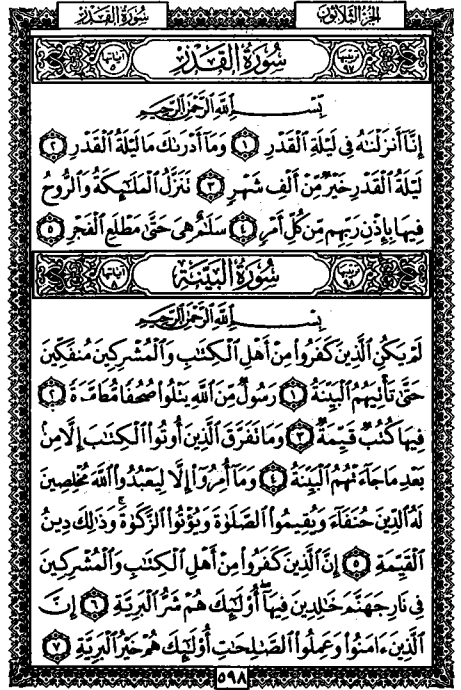 سُورَةُ القَدْرِ الجُزْءُ الثَّلَاثُونَ
آيَاتُهَا ٥ سُورَةُ القَدْرِ تَرْتِيبُهَا ٩٧
بِسْمِ اللَّهِ الرَّحْمَٰنِ الرَّحِيمِ
إِنَّآ أَنزَلْنَٰهُ فِى لَيْلَةِ ٱلْقَدْرِ ١ وَمَآ أَدْرَىٰكَ مَا لَيْلَةُ ٱلْقَدْرِ ٢
لَيْلَةُ ٱلْقَدْرِ خَيْرٌ مِّنْ أَلْفِ شَهْرٍ ٣ تَنَزَّلُ ٱلْمَلَٰٓئِكَةُ وَٱلرُّوحُ
فِيهَا بِإِذْنِ رَبِّهِم مِّن كُلِّ أَمْرٍ ٤ سَلَٰمٌ هِىَ حَتَّىٰ مَطْلَعِ ٱلْفَجْرِ ٥
آيَاتُهَا ٨ سُورَةُ البَيِّنَةِ تَرْتِيبُهَا ٩٨
بِسْمِ اللَّهِ الرَّحْمَٰنِ الرَّحِيمِ
لَمْ يَكُنِ ٱلَّذِينَ كَفَرُوا۟ مِنْ أَهْلِ ٱلْكِتَٰبِ وَٱلْمُشْرِكِينَ مُنفَكِّينَ
حَتَّىٰ تَأْتِيَهُمُ ٱلْبَيِّنَةُ ١ رَسُولٌ مِّنَ ٱللَّهِ يَتْلُوا۟ صُحُفًا مُّطَهَّرَةً ٢
فِيهَا كُتُبٌ قَيِّمَةٌ ٣ وَمَا تَفَرَّقَ ٱلَّذِينَ أُوتُوا۟ ٱلْكِتَٰبَ إِلَّا مِنۢ
بَعْدِ مَا جَآءَتْهُمُ ٱلْبَيِّنَةُ ٤ وَمَآ أُمِرُوٓا۟ إِلَّا لِيَعْبُدُوا۟ ٱللَّهَ مُخْلِصِينَ
لَهُ ٱلدِّينَ حُنَفَآءَ وَيُقِيمُوا۟ ٱلصَّلَوٰةَ وَيُؤْتُوا۟ ٱلزَّكَوٰةَ ۚ وَذَٰلِكَ دِينُ
ٱلْقَيِّمَةِ ٥ إِنَّ ٱلَّذِينَ كَفَرُوا۟ مِنْ أَهْلِ ٱلْكِتَٰبِ وَٱلْمُشْرِكِينَ
فِى نَارِ جَهَنَّمَ خَٰلِدِينَ فِيهَآ ۚ أُو۟لَٰٓئِكَ هُمْ شَرُّ ٱلْبَرِيَّةِ ٦ إِنَّ
ٱلَّذِينَ ءَامَنُوا۟ وَعَمِلُوا۟ ٱلصَّٰلِحَٰتِ أُو۟لَٰٓئِكَ هُمْ خَيْرُ ٱلْبَرِيَّةِ ٧
٥٩٨